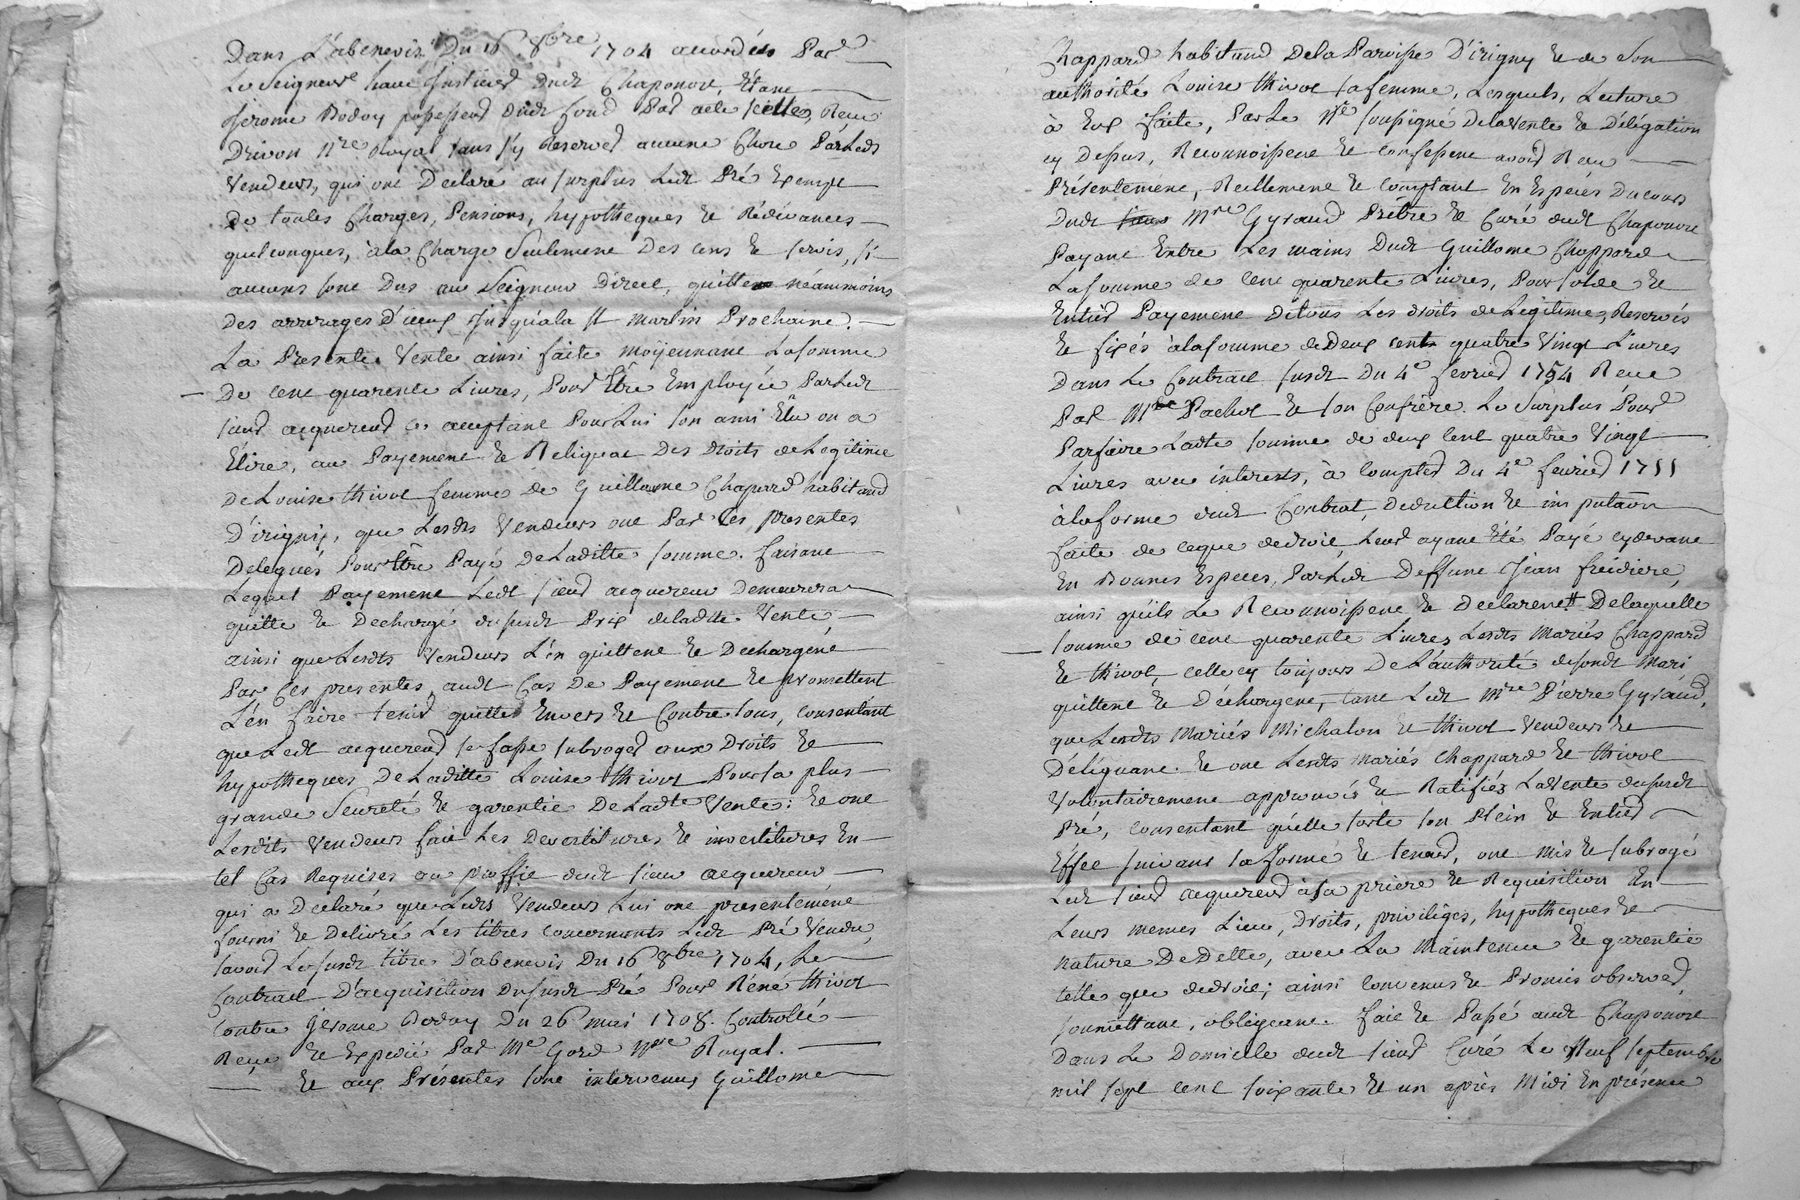 Dans L'abenevis Du 16 8bre 1704 accordés Par
Le Seigneur haut Justicier dudt Chaponost, Etant
Jerome Boday possesseur dudt fond Par acte scellé, Receu
Drivon nre Royal, sans s'y Reserver aucune Chose Parleds
Vendeurs, qui ont Declaré au surplus Ledt Pré Exempt
de toutes Charges, Pensions, hypotheques et Rédévances
quelconques, à la Charge Seulement Des cens et servis, si
aucuns sont Dus au Seigneur Direct, quitte néammoins
Des arrerages D'iceux Jusqu'ala St Martin Prochaine.
La Presente Vente ainsi faite moÿennant La somme
De cent quarente Livres, Pour Etre Employée Par Ledt
sieur acquereur ce acceptant Pour Lui son ami Elu ou a
Elire, au Payement et Reliquat Des Droits de Legitime
De Louise thivot femme de Guillaume Chapard habitand
D'irigny, que Lesdts Vendeurs ont Par Ces presentes
Delegués Pour Etre Payé De Laditte somme. faisant
Lequel Payement Ledt sieur acquereur Demeurera
quitte et Dechargé dususdt Prix deladte Vente
ainsi que Lesdts Vendeurs L'en quittent et Dechargent
Par Ces presentes audt Cas De Payement et promettent
L'en faire tenir quitte Envers et Contre tous, consentant
que Ledt acquereur se fasse subroger aux Droits et
hypotheques De Laditte Louise thivot Pour sa plus
grande Seureté et garentie De Ladte Vente: et ont
Lesdits Vendeurs fait Les Devestitures et investitures En
tel Cas Requises au proffit dudt sieur acquereur
qui a Declaré que Leurs Vendeurs Lui ont presentement
fourni et Delivré Les titres concernants Ledt Pré Vendu,
savoir Le susdt titre D'abenevis Du 16 8bre 1704, Le
Contract D'acquisition Dususdt Pré Pour Réné thivot
Contre Jerome Boday Du 26 mai 1708. Controllé
Reçu et Expedié Par Me Gord Nre Royal.
Et aux Présentes sont intervenus Guillome
Chappard habitand Dela Paroisse D'irigny et de Son
authorité Louise thivot sa femme, Lesquels, Lecture
à Eux faite, Par Le Nre soussigné Dela Vente et Délégation
cy Dessus, Reconnoissent et confessent avoir Receu
Présentement, Réellement et comptant En Espéces Du cours
Dudt Mre Gyraud Prêtre et Curé dudt Chaponost
Payant Entre Les mains Dudt Guillome Chappard
La somme de Cent quarente Livres, Pour solde et
Entier Payement De tous Les droits de Legitime, Reservés
et fixés àla somme de Deux cents quatre Vingt Livres
Dans Le Contract susdt Du 4e fevrier 1754 Receu
Par Me Pachot et son Confrère. Le Surplus Pour
Parfaire Ladte somme de deux Cent quatre Vingt
Livres avec interests, à Compter Du 4e fevrier 1755
àla forme dudt Contrat, Deduction et imputation
faite de ceque dedroit, Leur ayant Eté Payé cydevant
En Bonnes Especes, Par Ledt Deffunt Jean freidiere,
ainsi qu'ils Le Reconnoissent et Declarent. De laquelle
somme de Cent quarente Livres Lesdts Mariés Chappard
et thivot, celle cy toujours De L'authorité desondt Mari
quittent et Déchargent, tant Ledt Mre Pierre Gyraud,
que Lesdts Mariés Michalon et thivot Vendeurs et
Déléguant. et ont Lesdts Mariés Chappard et thivot
Volontairement approuvé et Ratifiés La Vente dususdt
Pré, consentant qu'elle sorte son Plein et Entier
Effet suivant sa forme et teneur, ont mis et subrogé
Ledt sieur acquereur à sa priere et Requisition En
Leurs memes Lieu, Droits, priviléges, hypotheques et
Nature De Dette, avec La Maintenue et garentie
telle que dedroit; ainsi Convenus et Promis observer,
soumettant, obligeant. fait et Passé audt Chaponost
Dans Le Domicille dudt sieur Curé Le Neuf septembre
mil sept cent soixante et un après Midi En présence